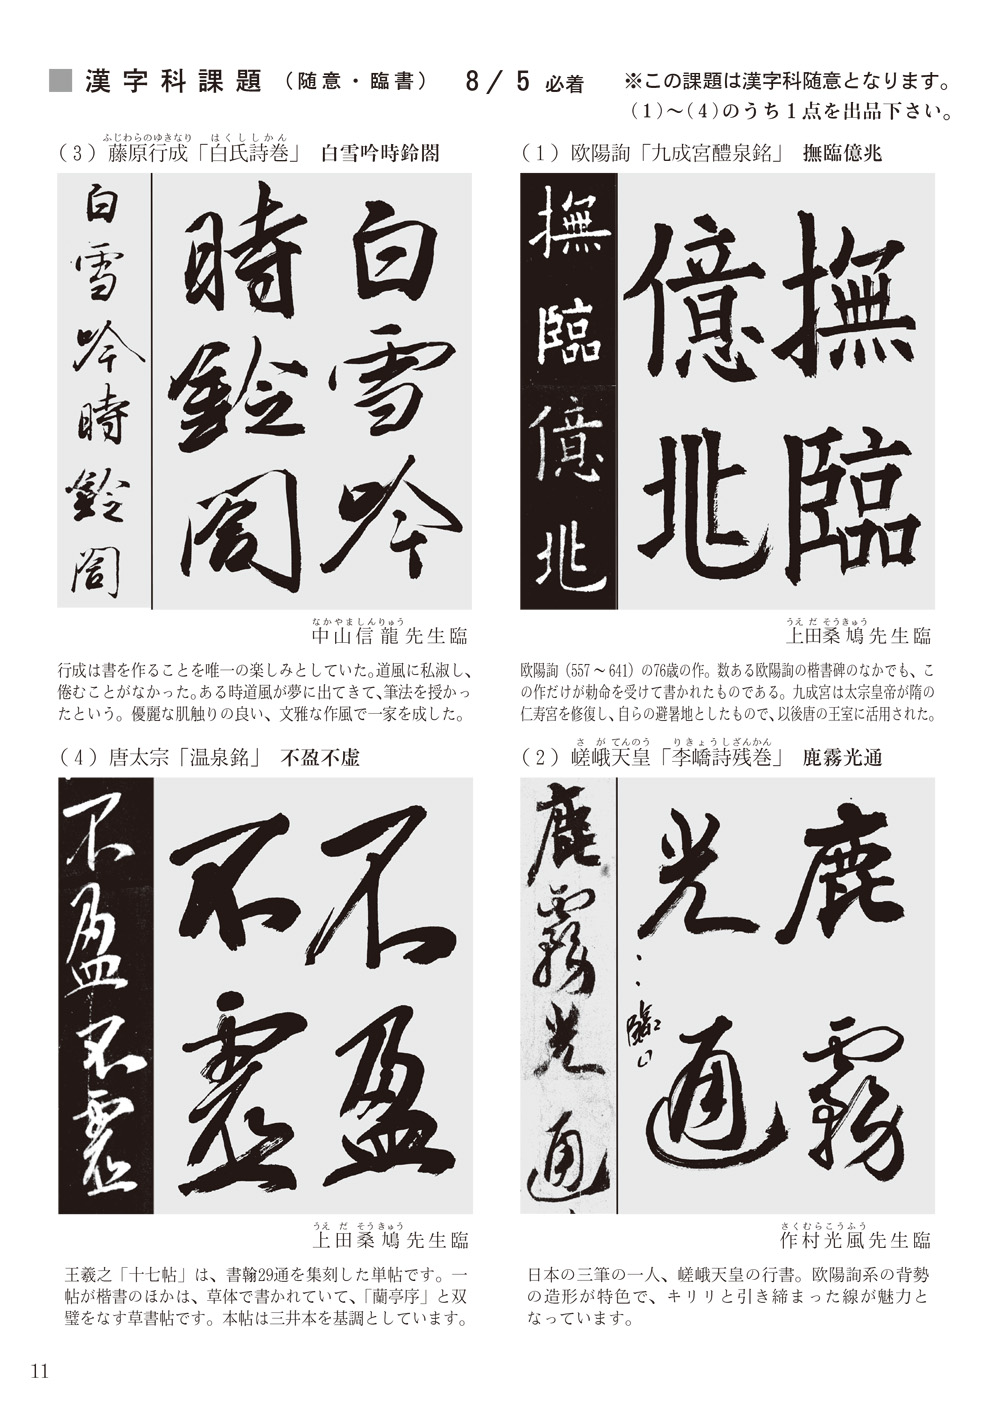 ■ 漢字科課題（随意・臨書） 8/5 必着 ※この課題は漢字科随意となります。
（1）～（4）のうち１点を出品下さい。
（1）欧陽詢「九成宮醴泉銘」 撫臨億兆
撫臨億兆
撫臨
億兆
うえだそうきゅう
上田桑鳩先生臨
欧陽詢（557～641）の76歳の作。数ある欧陽詢の楷書碑のなかでも、こ
の作だけが勅命を受けて書かれたものである。九成宮は太宗皇帝が隋の
仁寿宮を修復し、自らの避暑地としたもので、以後唐の王室に活用された。
さがてんのう りきょうしざんかん
（2）嵯峨天皇「李嶠詩残巻」 鹿霧光通
鹿霧光通
鹿霧
光通
臨
さくむらこうふう
作村光風先生臨
日本の三筆の一人、嵯峨天皇の行書。欧陽詢系の背勢
の造形が特色で、キリリと引き締まった線が魅力と
なっています。
ふじわらのゆきなり はくししかん
（3）藤原行成「白氏詩巻」 白雪吟時鈴閤
白雪吟時鈴閤
白雪吟
時鈴閤
なかやましんりゅう
中山信龍先生臨
行成は書を作ることを唯一の楽しみとしていた。道風に私淑し、
倦むことがなかった。ある時道風が夢に出てきて、筆法を授かっ
たという。優麗な肌触りの良い、文雅な作風で一家を成した。
（4）唐太宗「温泉銘」 不盈不虚
不盈不虚
不盈
不虚
うえだそうきゅう
上田桑鳩先生臨
王羲之「十七帖」は、書翰29通を集刻した単帖です。一
帖が楷書のほかは、草体で書かれていて、「蘭亭序」と双
璧をなす草書帖です。本帖は三井本を基調としています。
11